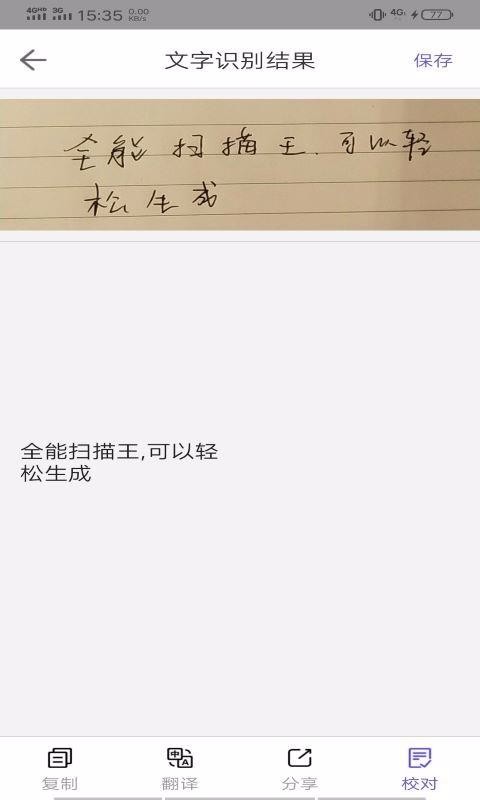 4GHD 3G 15:35 0.00 KB/s 4G 77
文字识别结果 保存
全能扫描王.可以轻
松生成
全能扫描王,可以轻
松生成
复制 翻译 分享 校对